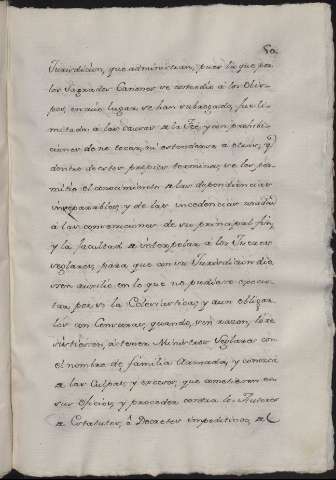 50.
Jurisdicion, que administran, pues la que por
los Sagrados Canones se concedio a los Obis-
pos, en cuio lugar se han subrogado, fue li-
mitada à los Causas de la Feè, y con prohibi-
ciones de no tocar, ni estenderse a otros; q.
dentro de estos propios terminos se les per-
mitio el conocimiento de las dependiencias
inseparables, y de las incedencias unidas
à las concesiones de su principal fin,
y la facultad de interpelar à los Jueces
seglares, para que con su Jurisdicion die-
ssen auxilio en lo que no pudiere execu-
tar por si la Eclesiastica; y aun obligar
los con Censuras, quando, sin razon, lo re-
sistiesen, à tener Ministros Seglares con
el nombre de familia Armada, y conocer
de las Culpas, y excesos, que cometieren en
sus Oficios, y proceder contra los Autores
de Estatutos, ò Decretos impeditivos, al